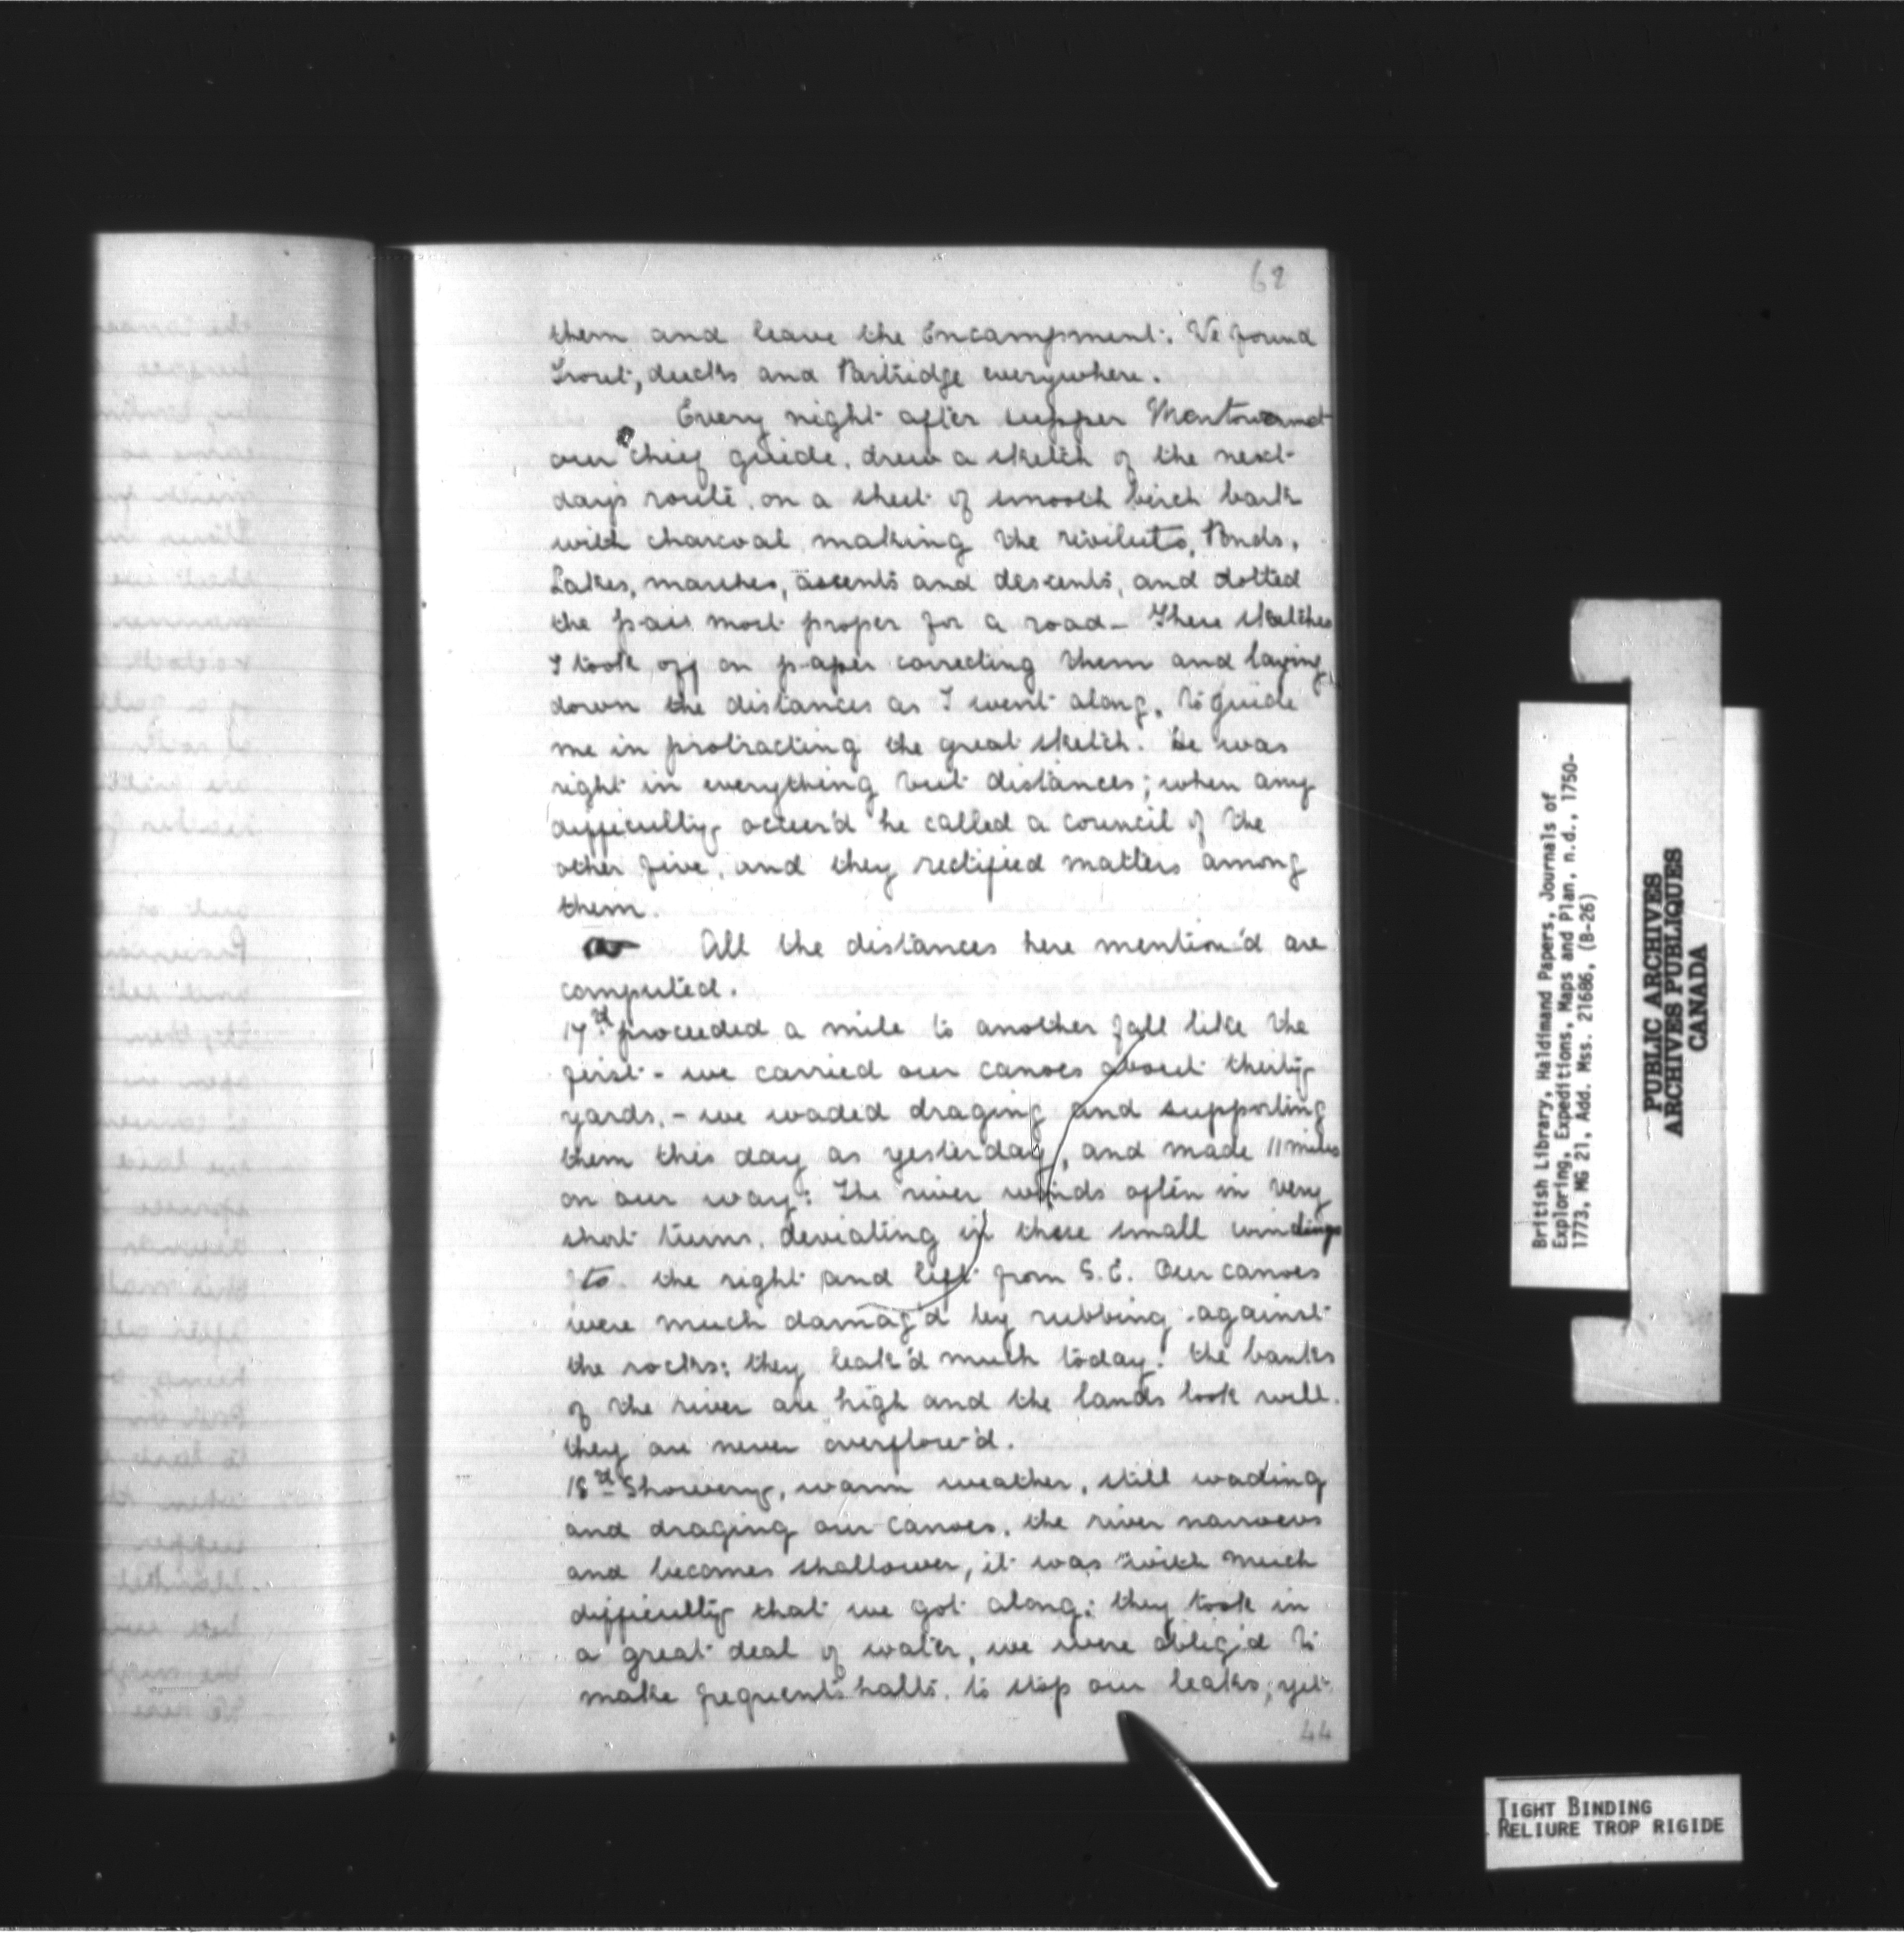 62
them and leave the Encampment. We found
Trout, ducks and Partridge everywhere.
Every night after supper
our chief guide, drew a sketch of the next
days route, on a sheet of smooth birch bark
with charcoal, making the riviluts, Ponds,
Lakes, marshes, ascents and descents, and dotted
the pass most proper for a road - These sketches
I took off on paper correcting them and laying
down the distances as I went along, to guide
me in protracting the great sketch. He was
right in everything but distances; when any
difficulty occur'd he called a council of the
other five, and they rectified matters among
them.
All the distances here mention'd are
computed.
17th proceeded a mile to another fall like the
first - we carried our canoes about thirty
yards, - we waded draging and supporting
them this day as yesterday, and made 11 miles
on our way: The river winds often in very
short turns, deviating in these small windings
to the right and left from S.E. Our canoes
were much damag'd by rubbing against
the rocks: they leak'd much today: the banks
of the river are high and the lands look well.
they are never overflow'd.
18th Showery, warm weather, still wading
and draging our canoes, the river narrows
and becomes shallower, it was with much
difficulty that we got along: they took in
a great deal of water, we were oblig'd to
make frequents halts, to stop our leaks; yet
44
British Library, Haldimand Papers, Journals of
Exploring, Expeditions, Maps and Plan, n.d., 1750-
1773, MG 21, Add. Mss. 21686, (B-26)
PUBLIC ARCHIVES
ARCHIVES PUBLIQUES
CANADA
TIGHT BINDING
RELIURE TROP RIGIDE